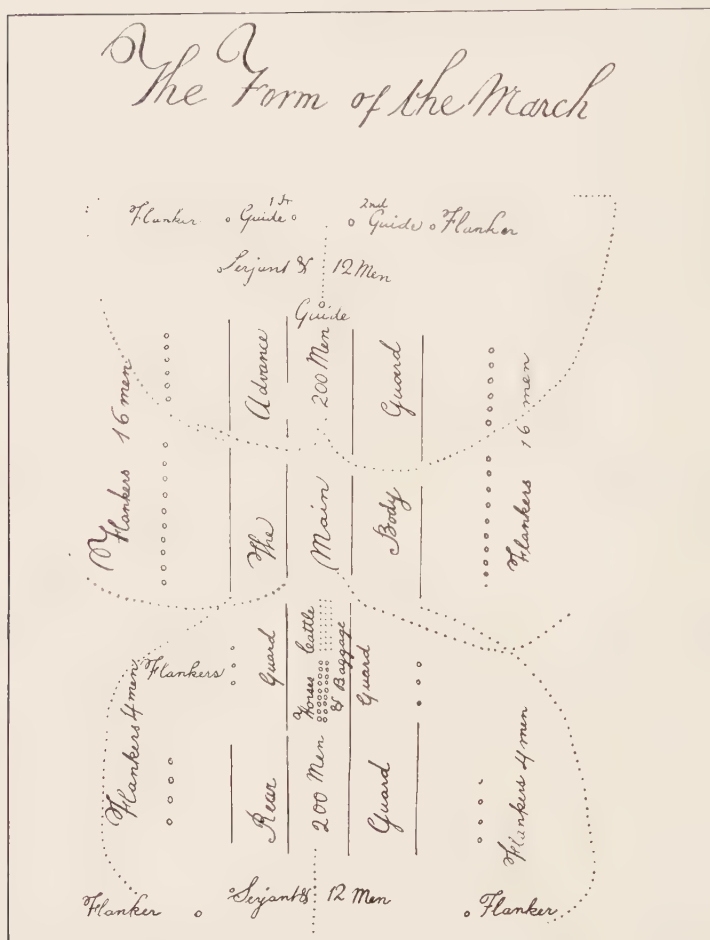 The Form of the March
Flanker 1st Guide 2nd Guide Flanker
Serjant & 12 Men
Guide
Flankers 16 men
Advance
200 Men
Guard
Flankers 16 men
The
Main
Body
Flankers
Guard
Horses Cattle
& Baggage
Guard
Flankers 4 men
Rear
200 Men
Guard
Flankers 4 men
Flanker Serjant & 12 Men Flanker